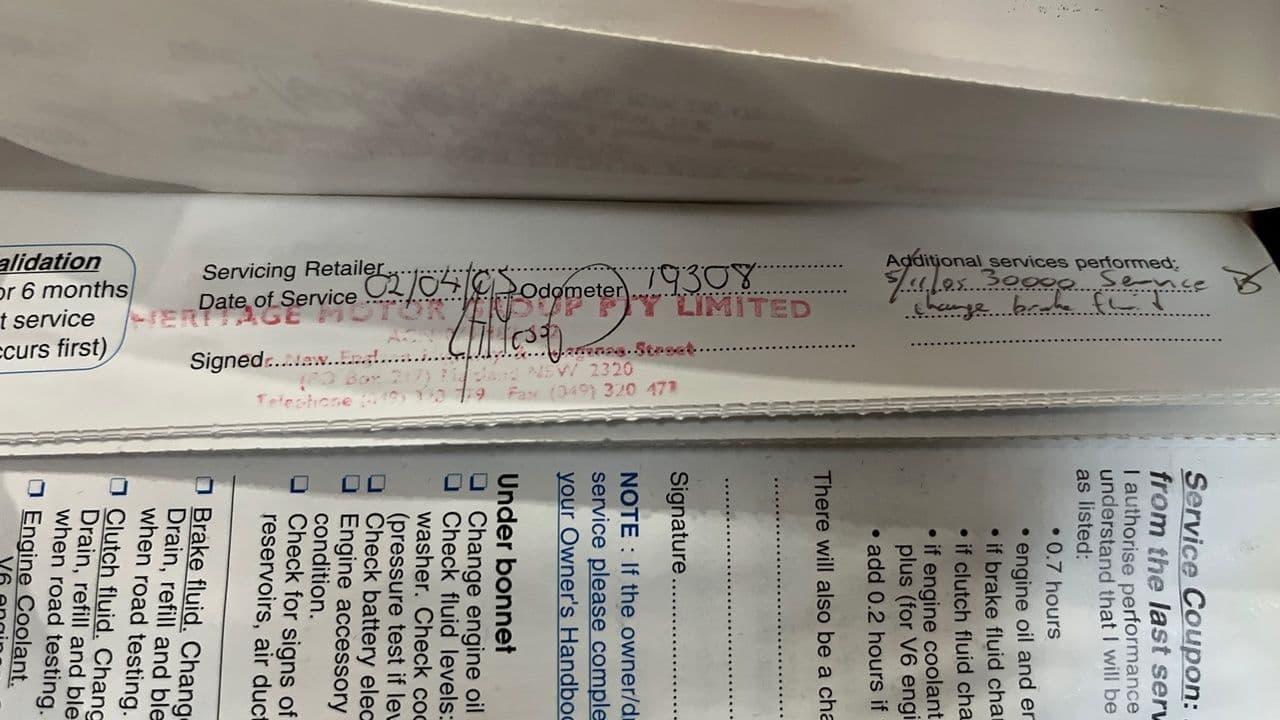 alidation
or 6 months
t service
ccurs first)
Servicing Retailer
Date of Service 02/04/05 Odometer 19308
HERITAGE MOTOR GROUP PTY LIMITED
Signed
Street
NSW 2320
Telephone Fax (049) 320 47
Additional services performed:
5/11/05 30000 Service
change brake fluid
Service Coupon:
from the last serv
I authorise performance
understand that I will be
as listed:
• 0.7 hours
• engine oil and er
• if brake fluid cha
• if clutch fluid cha
• if engine coolant
plus (for V6 engi
• add 0.2 hours if
There will also be a cha
Signature
NOTE : If the owner/d
service please comple
your Owner's Handboo
Under bonnet
Change engine oil
Check fluid levels:
washer. Check coo
(pressure test if lev
Check battery elec
Engine accessory
condition.
Check for signs of
reservoirs, air duct
Brake fluid. Chang
Drain, refill and ble
when road testing.
Clutch fluid. Chang
Drain, refill and ble
when road testing.
Engine Coolant.
V6 engin